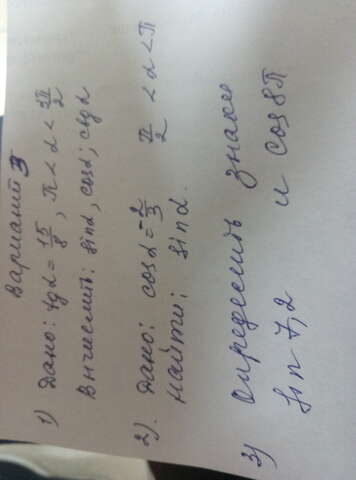 Вариант 3
1) Дано: tg α = 15/8, π < α < 3π/2
Вычислить: sin α, cos α; ctg α
2). Дано: cos α = -2/3 π/2 < α < π
Найти: sin α.
3) Определить знаки
sin 7,2 и cos 8π